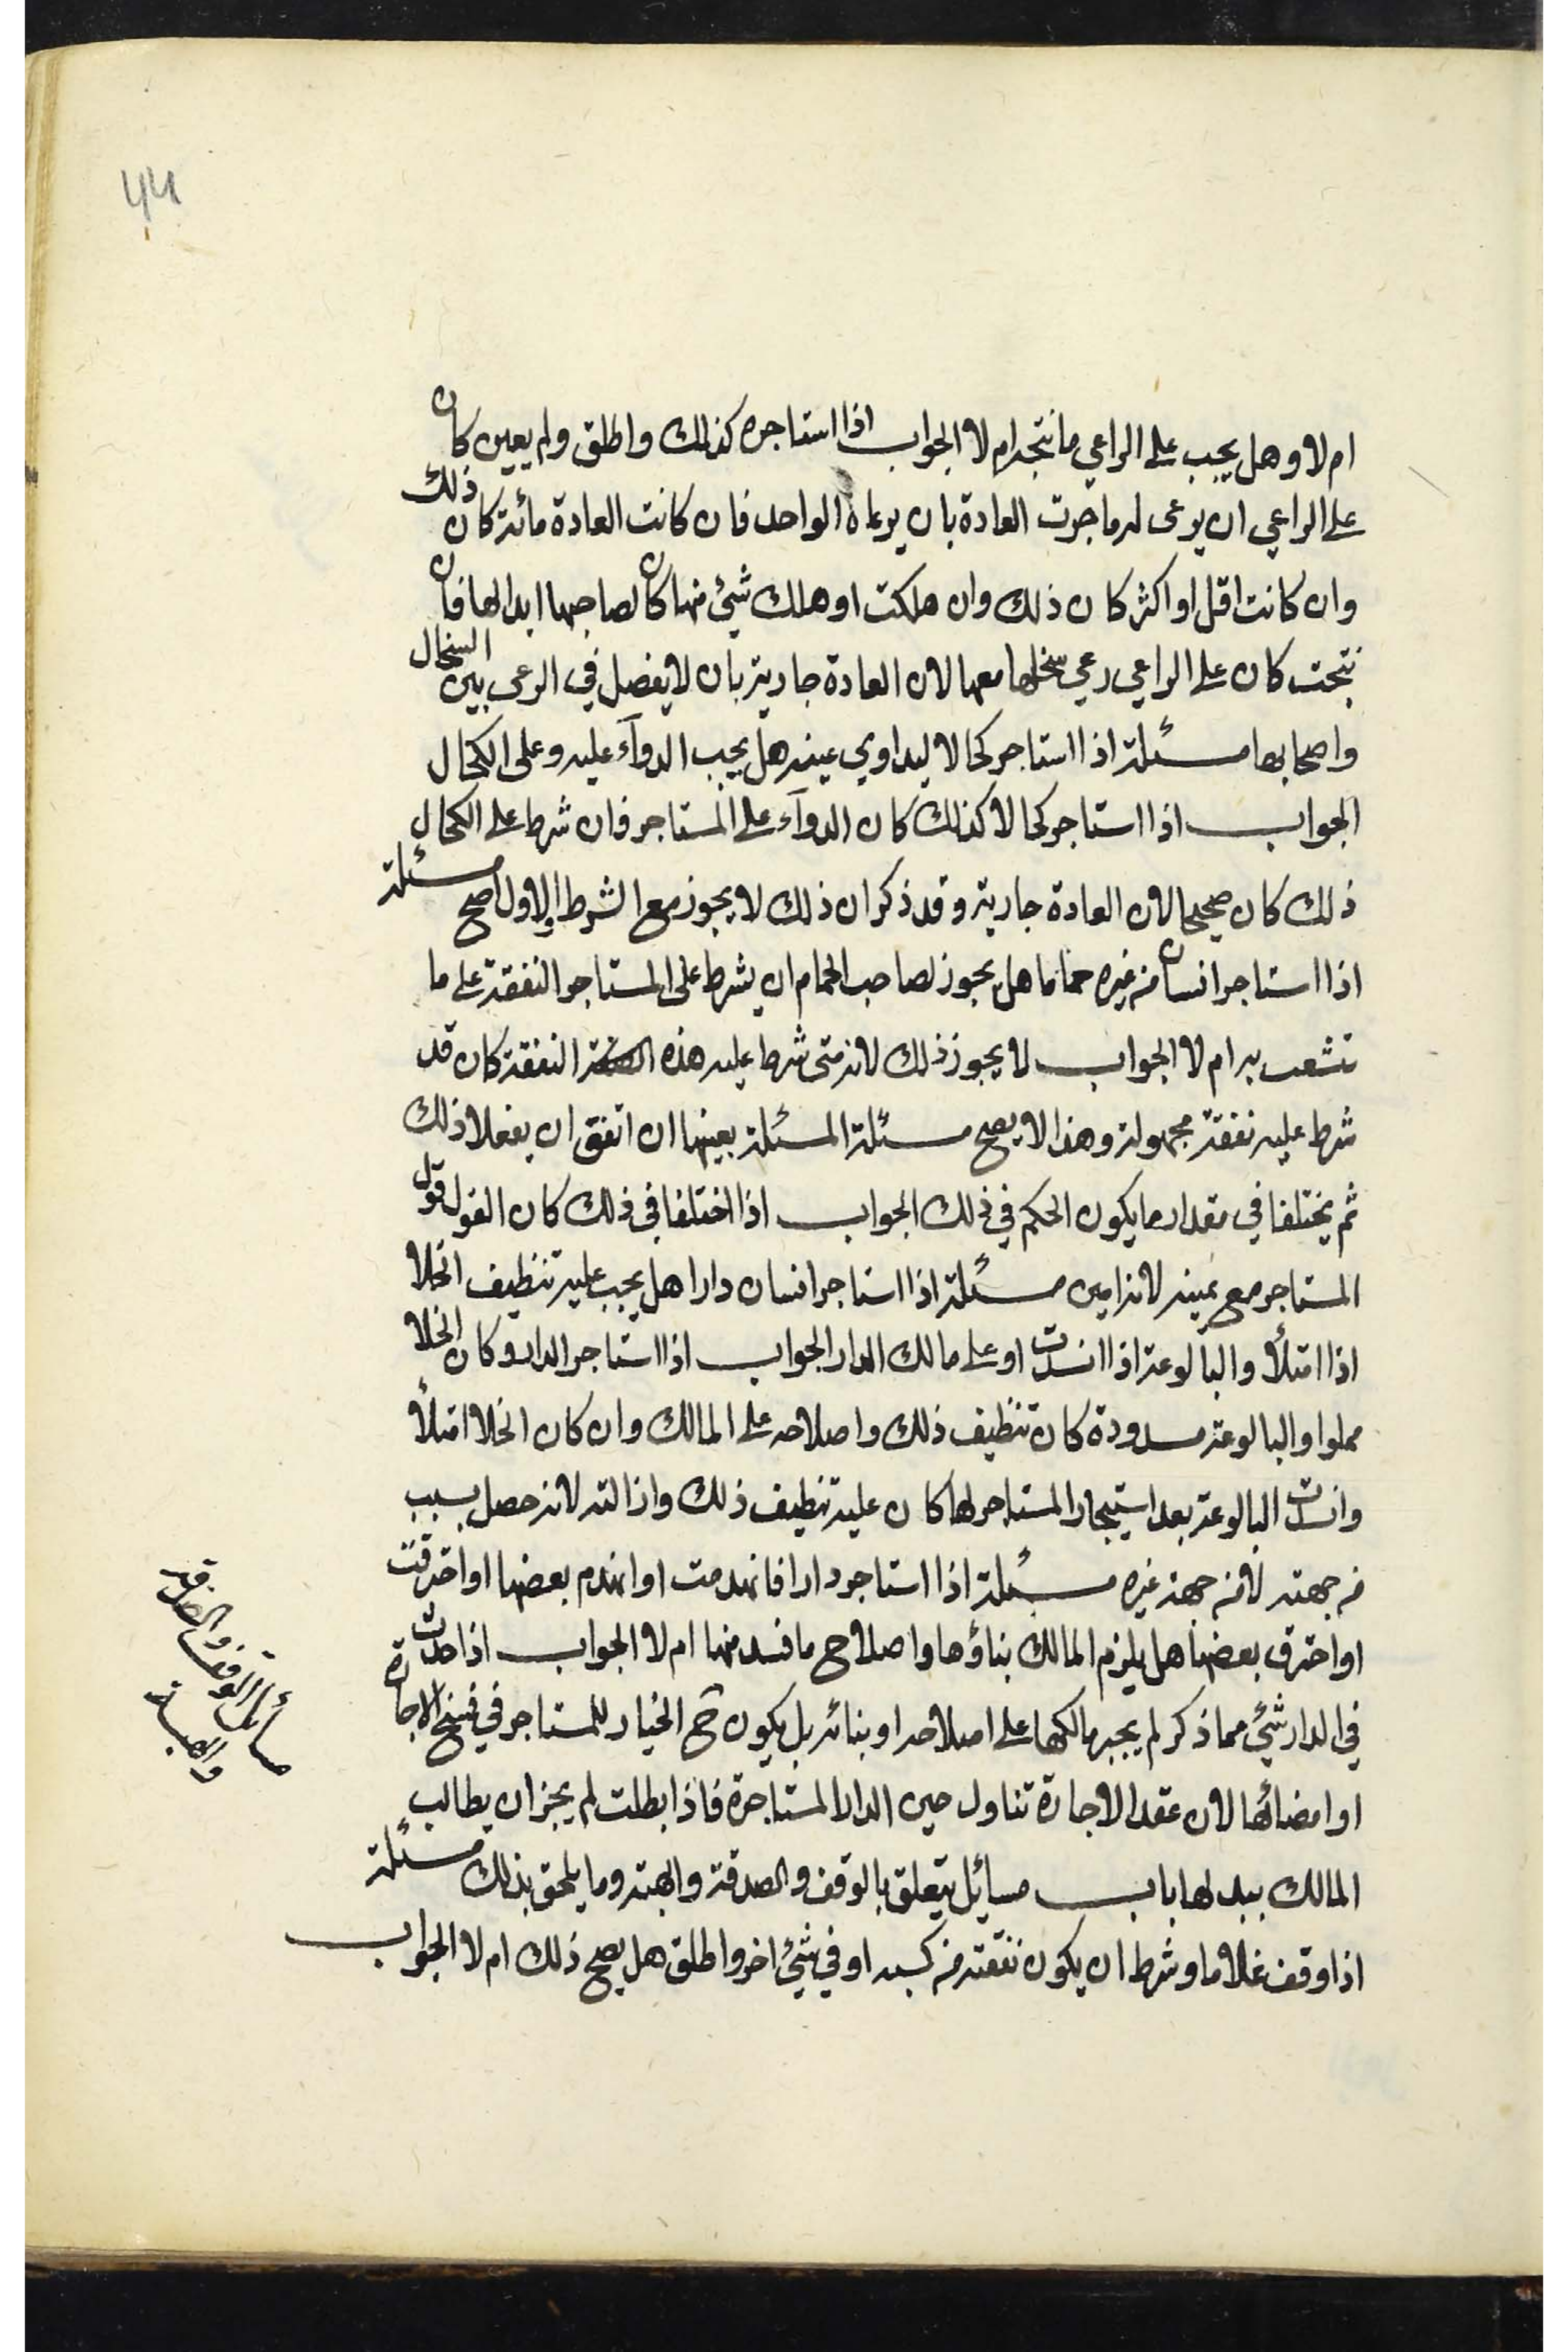 44
ام لا وهل يجب على الراعي ما نتجه ام لا الجواب اذا استاجره كذلك واطلق ولم يعين كان
على الراعي ان يرعى له ما جرت العادة بان يرعاه الواحد فان كانت العادة مائة كان ذلك
وان كانت اقل او اكثر كان ذلك وان هلكت او هلك شئ منها كان لصاحبها ابدالها فان
نتجت كان على الراعي رعي سخلها معها لان العادة جارية بان لا يفصل في الرعى بين السخال
واصحابها مسئلة اذا استاجر كحالا ليداوي عينه هل يجب الدوآء عليه وعلى الكحال
الجواب اذا استاجر كحالا كذلك كان الدوآء على المستاجر فان شرط على الكحال
ذلك كان صحيحا لان العادة جارية وقد ذكر ان ذلك لا يجوز مع الشرط والاول اصح مسئلة
اذا استاجر انسان من غيره حماما هل يجوز لصاحب الحمام ان يشرط على المستاجر النفقة على ما
تشعب به ام لا الجواب لا يجوز ذلك لانه متى شرط عليه هذه النفقة كان قد
شرط عليه نفقة مجهولة وهذا لا يصح مسئلة المسئلة بعينها ان اتفق ان يفعلا ذلك
ثم يختلفا في مقدار ما يكون الحكم في ذلك الجواب اذا اختلفا في ذلك كان القول قول
المستاجر مع يمينه لانه امين مسئلة اذا استاجر انسان دارا هل يجب عليه تنظيف الخلا
اذا امتلأ والبالوعة اذا انسدت او على مالك الدار الجواب اذا استاجر الدار وكان الخلا
مملوا والبالوعة مسدودة كان تنظيف ذلك واصلاحه على المالك وان كان الخلا امتلأ
وانسدت البالوعة بعد استيجار المستاجر لها كان عليه تنظيف ذلك وازالته لانه حصل بسبب
من جهته لا من جهة غيره مسئلة اذا استاجر دارا فانهدمت او انهدم بعضها او احترقت
او احترق بعضها هل يلزم المالك بناؤها واصلاح ما فسد منها ام لا الجواب اذا حدث
في الدار شئ مما ذكر لم يجبر مالكها على اصلاحه او بنائه بل يكون ح الخيار للمستاجر في فسخ الاجارة
او امضائها لان عقد الاجارة تناول حين الدار المستاجرة فاذا بطلت لم يجز ان يطالب
المالك ببدلها باب مسايل يتعلق بالوقف والصدقة والهبة وما يلحق بذلك مسئلة
اذا وقف غلاما وشرط ان يكون نفقته من كسبه او في شئ اخر واطلق هل يصح ذلك ام لا الجواب
مسائل الوقف والصدقة
والهبة